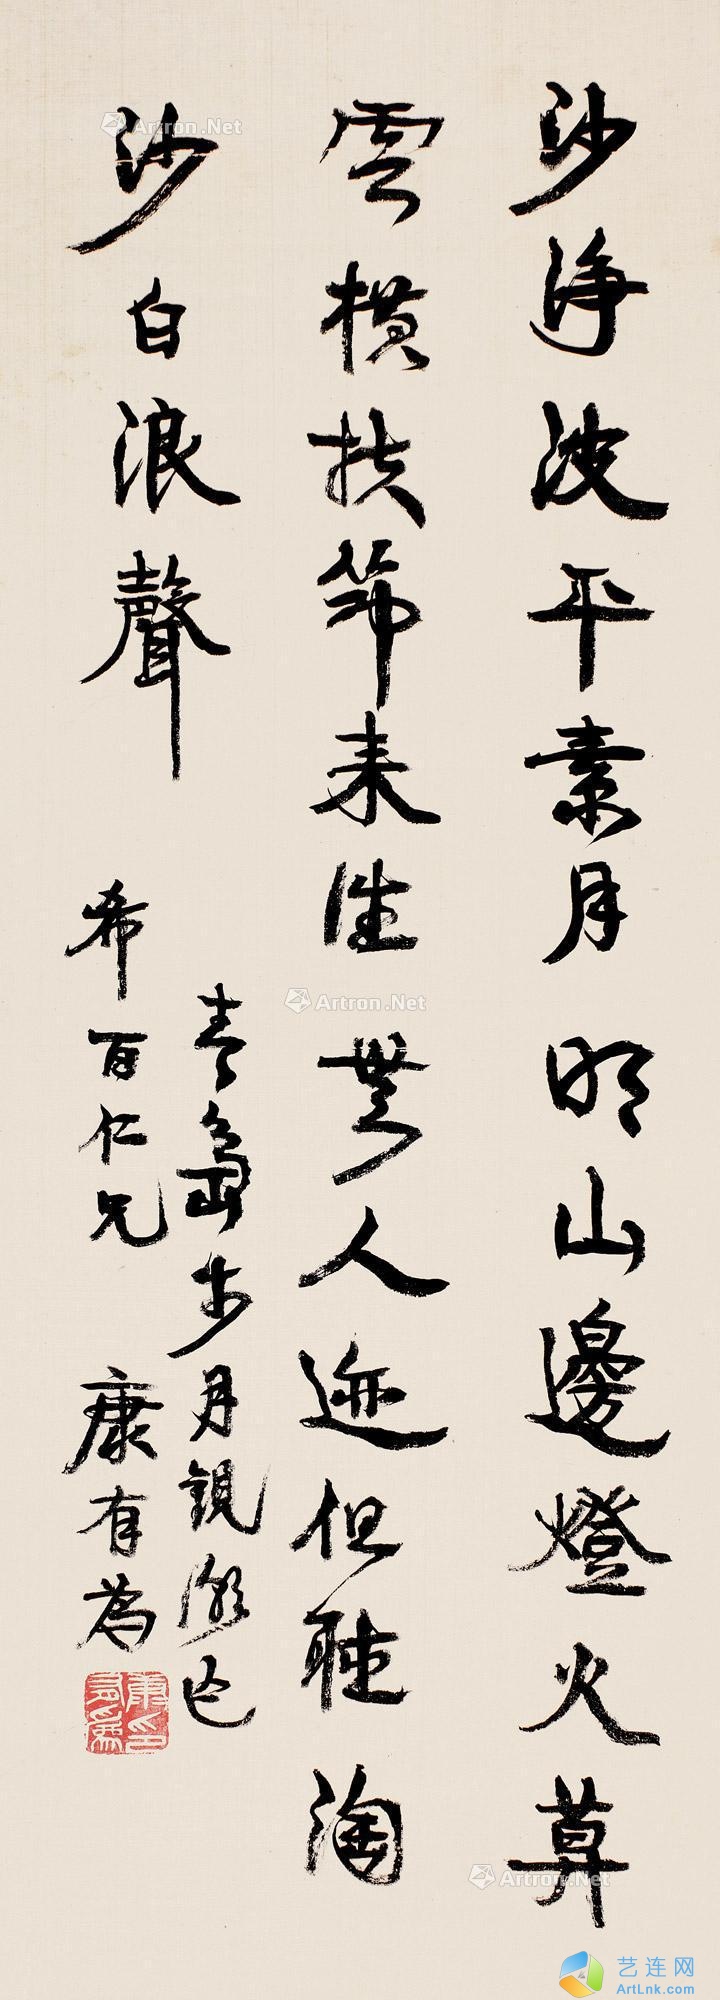 沙淨波平素月明山邊燈火莫
雲橫扶筇來往無人迹但聽淘
沙白浪聲
青島步月觀潮作
希百仁兄
康有為
康有為印
Artron.Net
Artron.Net
Artron.Net
艺连网
ArtLnk.com